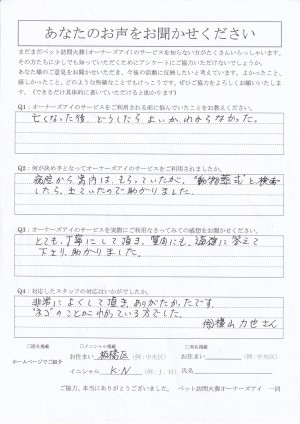 あなたのお声をお聞かせください
まだまだペット訪問火葬(オーナーズアイ)のサービスを知らない方がたくさんいらっしゃいます。
その方たちに少しでも知っていただくためにアンケートにご協力いただけないでしょうか。
あなた様のご意見をお聞かせいただき、今後の活動に反映したいと考えています。よかったこと、
嬉しかったこと、どのような些細なことでもけっこうです。ぜひご協力をよろしくお願いいたしま
す。(できるだけ具体的に書いていただけると助かります)
Q1：オーナーズアイのサービスをご利用される前に悩んでいたことをお教えください。
亡くなった後、どうしたらよいかわからなかった。
Q2：何が決め手となってオーナーズアイのサービスをご利用されましたか。
病院から案内は、もらっていたが、"動物葬式"と検索
したら、出ていたので助かりました。
Q3：オーナーズアイのサービスを実際にご利用なさってみての感想をお聞かせください。
とても、丁寧にして頂き、質問にも、適確に答えて
下さり、助かりました。
Q4：対応したスタッフの対応はいかがでしたか。
非常によくして頂き、ありがたかったです。
"ネコ"のことがわかっている方でした。
横山力也さん
ホームページでご紹介
□匿名掲載
□イニシャル掲載
□実名掲載
お住まい 板橋区 (例：中央区)
お住まい (例：中央区)
イニシャル K.N (例：J.H)
氏名
ご協力、本当にありがとうございました。 ペット訪問火葬オーナーズアイ 一同